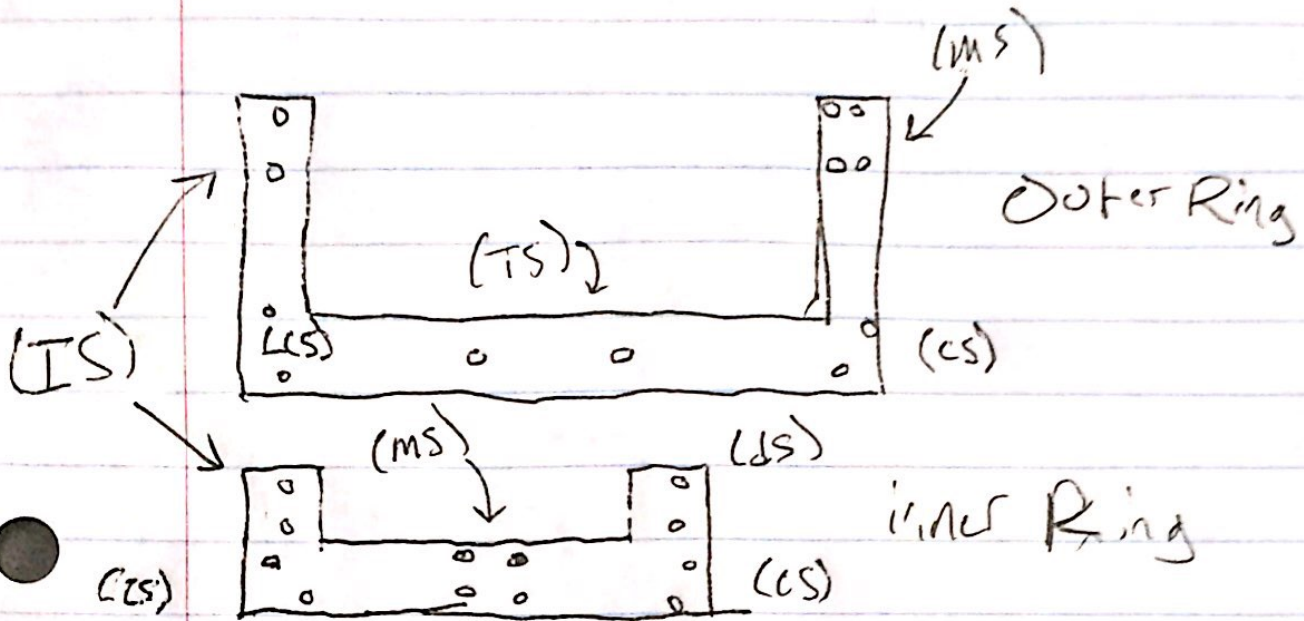 (ms)
Outer Ring
(TS)
(IS)
(CS)
(cs)
(ms)
(ds)
inner Ring
(IS)
(cs)